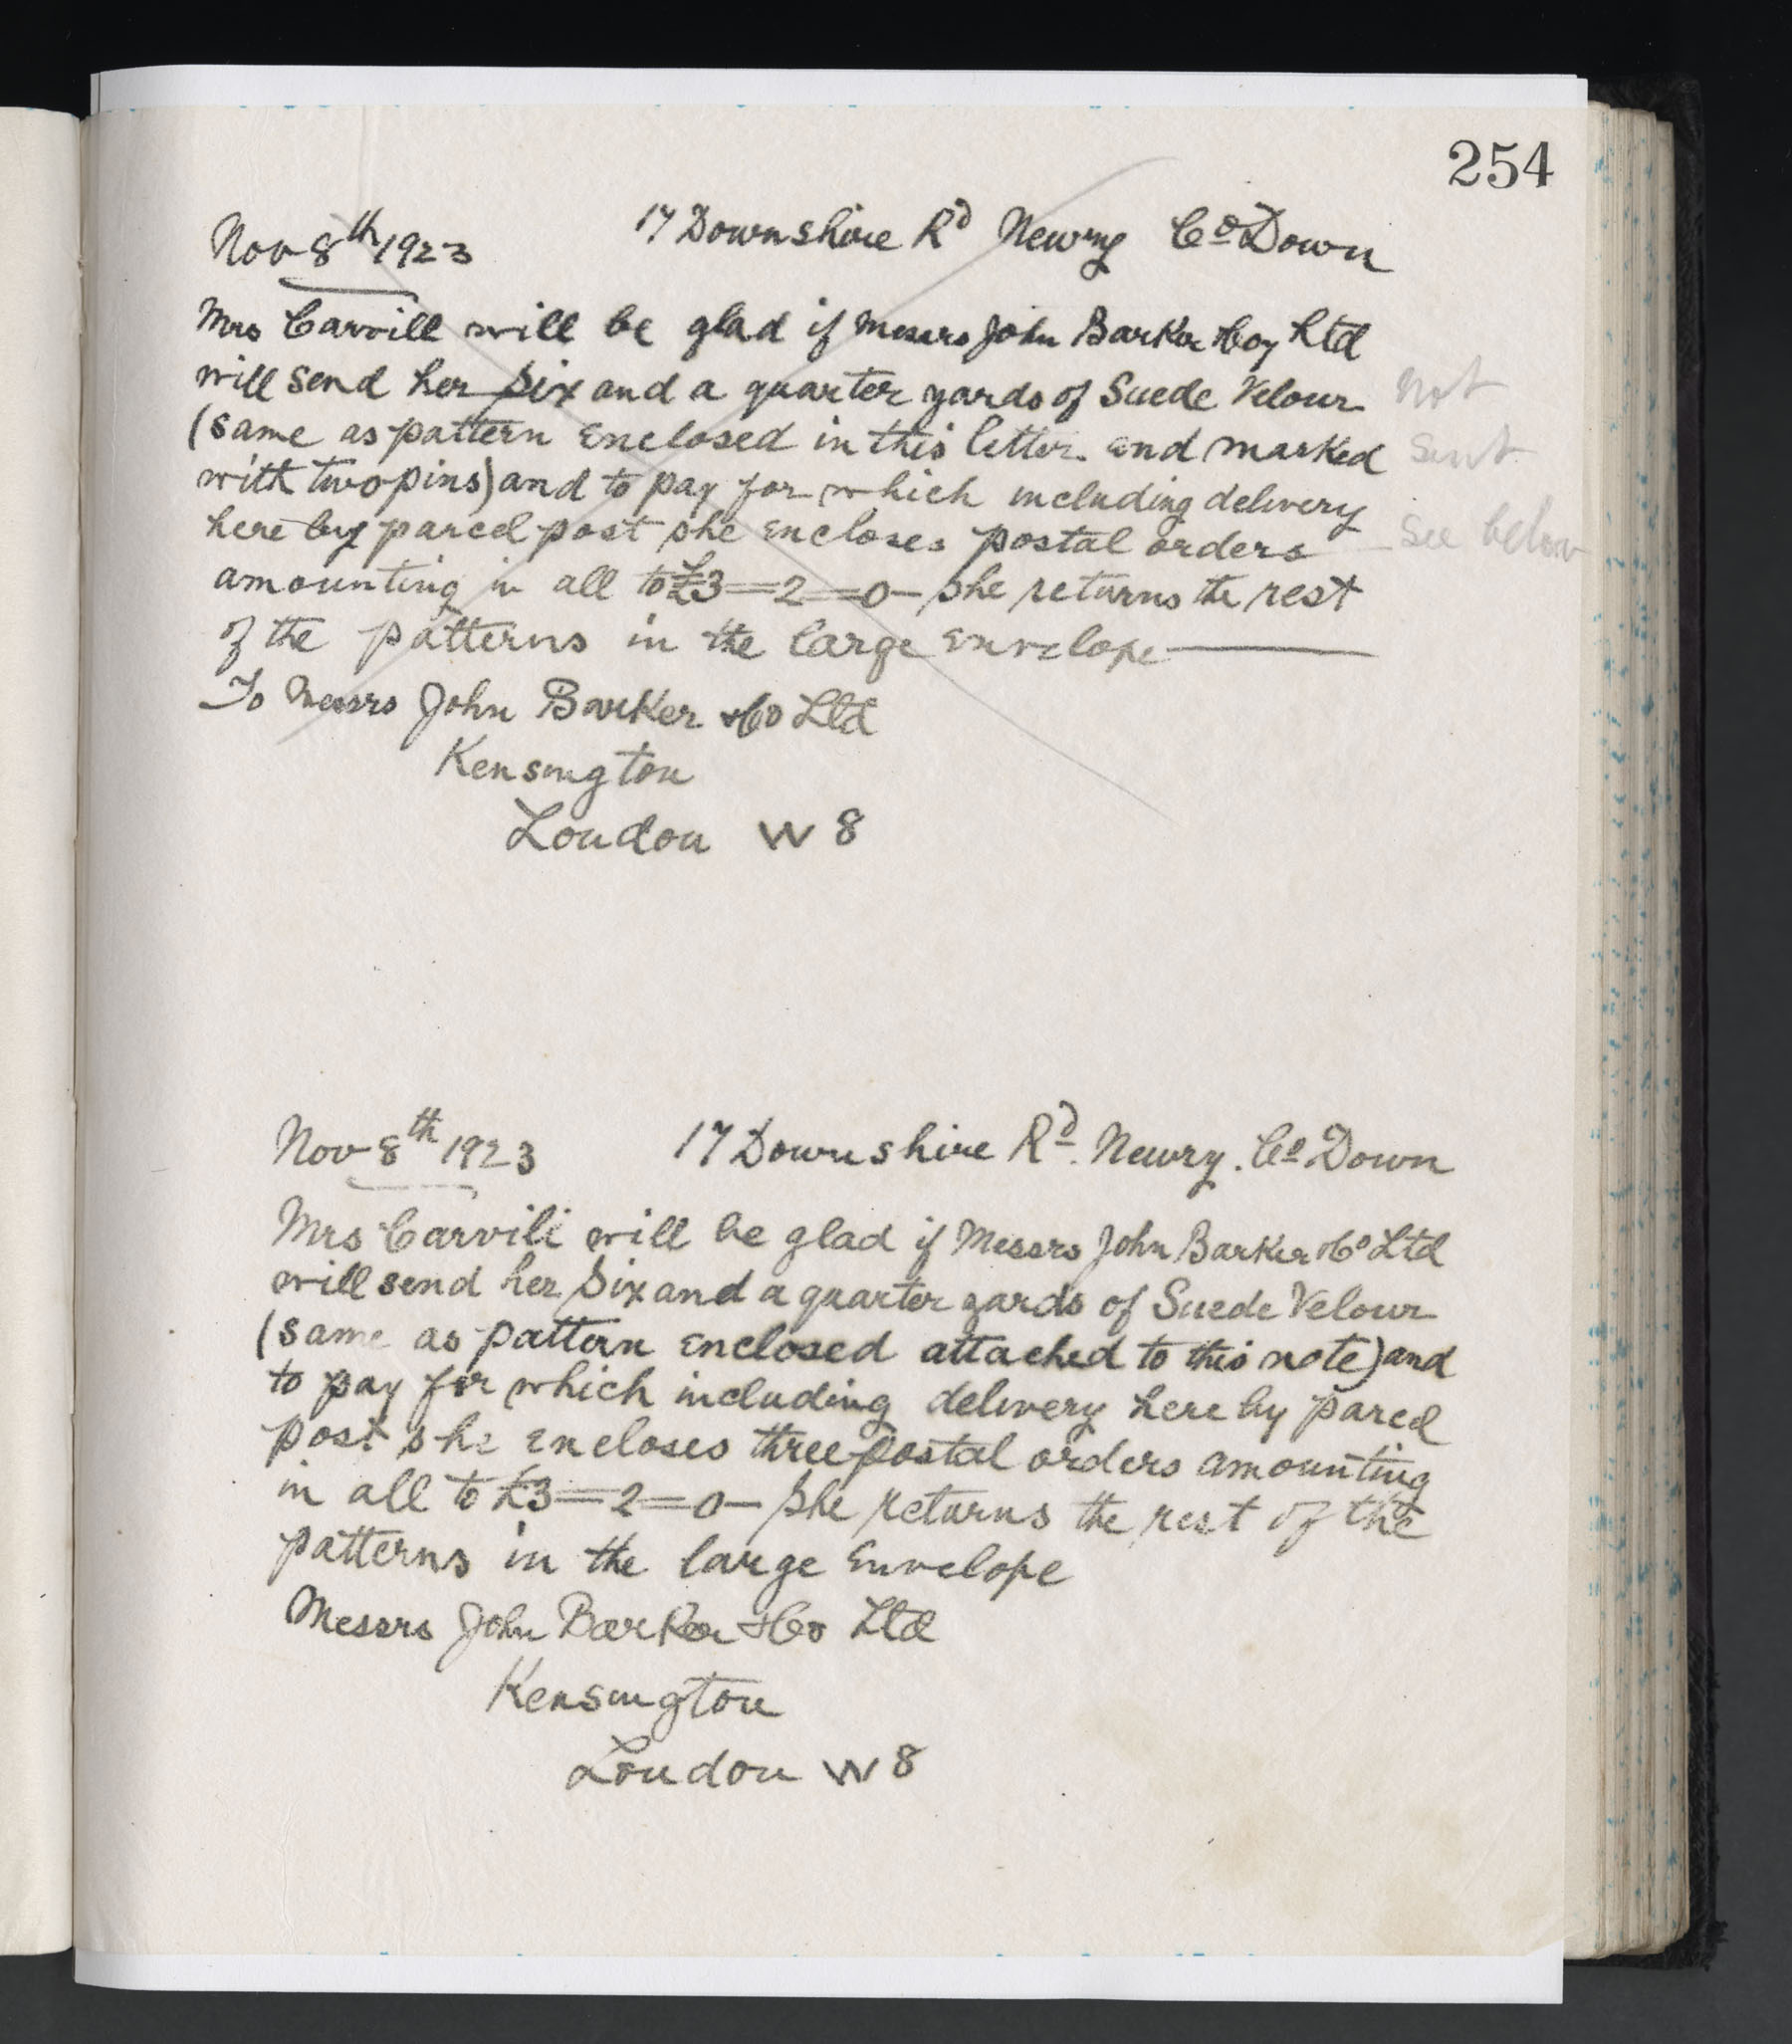 254
Nov 8th 1923 17 Downshire Rd Newry Co Down
Mrs Carvill will be glad if Messrs John Barker & Coy Ltd
will send her six and a quarter yards of Suede Velour not
(same as pattern enclosed in this letter and marked sent
with two pins) and to pay for which including delivery
here by parcel post she encloses postal orders — see below
amounting in all to £3=2=0— she returns the rest
of the patterns in the large envelope ——
To Messrs John Barker & Co Ltd
Kensington
London W 8
Nov 8th 1923 17 Downshire Rd. Newry. Co Down
Mrs Carvill will be glad if Messrs John Barker & Co Ltd
will send her six and a quarter yards of Suede Velour
(same as pattern enclosed attached to this note) and
to pay for which including delivery here by parcel
post she encloses three postal orders amounting
in all to £3=2=0— she returns the rest of the
patterns in the large envelope
Messrs John Barker & Co Ltd
Kensington
London W 8